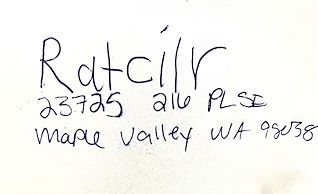 Ratcilr
23725 216 PL SE
Maple Valley WA 98038